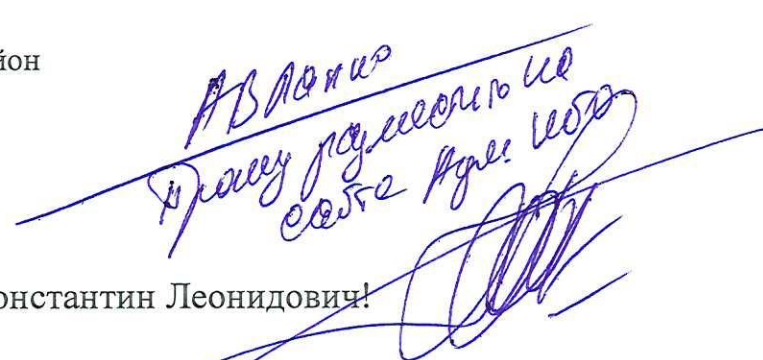 йон
АВ Лапко
Прошу разместить на
сайте Адм
онстантин Леонидович!